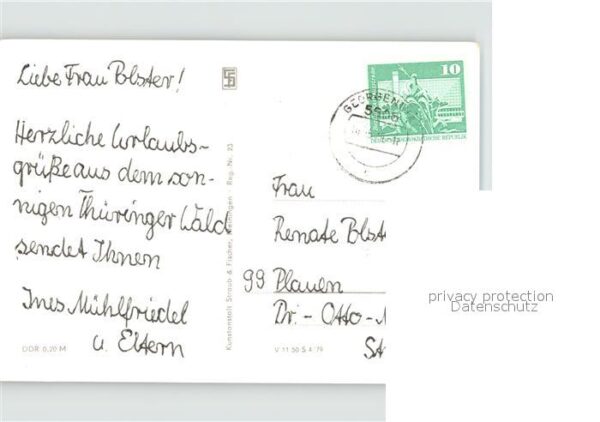 Liebe Frau Polster!
Herzliche Urlaubs-
grüße aus dem son-
nigen Thüringer Wald
sendet Ihnen
Ines Mühlfriedel
u. Eltern
DDR 0,20 M
Kunstanstalt Straub & Fischer, Meiningen Reg. Nr. 93
V 11 50 S 4/79
10
DEUTSCHE DEMOKRATISCHE REPUBLIK
GEORGEN
Frau
Renate Polste
99 Plauen
Dr.-Otto-
St
privacy protection
Datenschutz